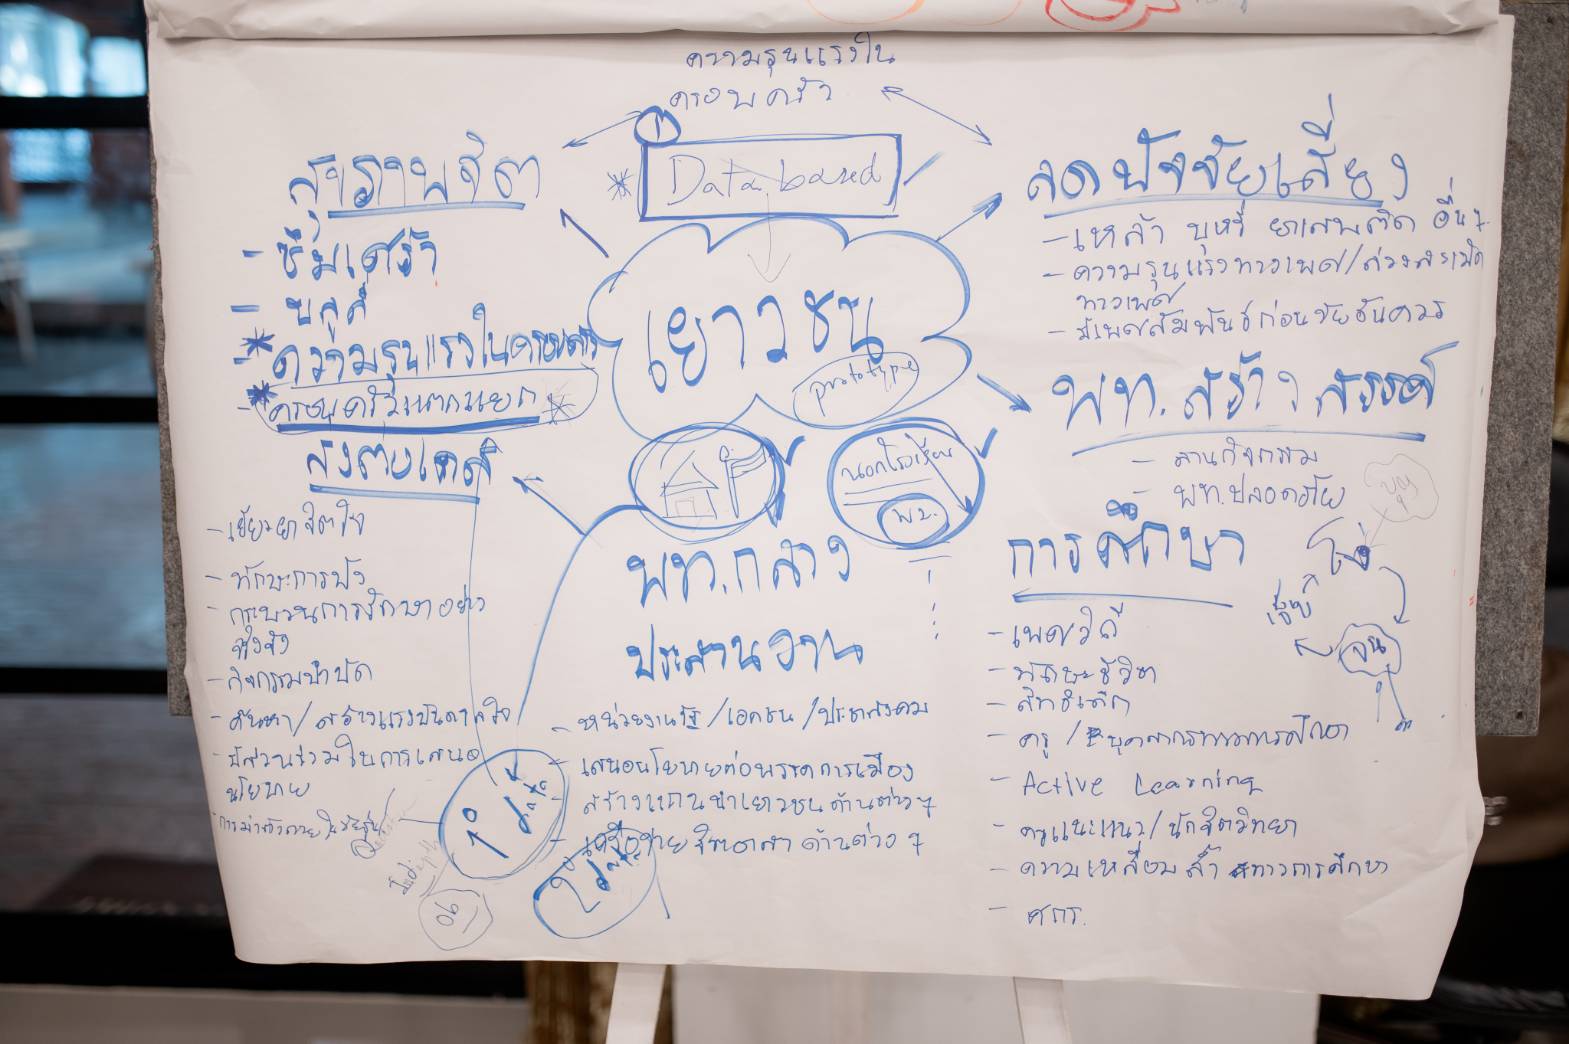 ความรุนแรงใน
ครอบครัว
1
Data based
เยาวชน
prototype
สุขภาพจิต
- ซึมเศร้า
- บูลลี่
- ความรุนแรงในครอบครัว
- ครอบครัวแตกแยก
สิ่งต้องเกิด
- เยียวยาจิตใจ
- ทักษะการฟัง
- กระบวนการรักษาอย่าง
จริงจัง
- กิจกรรมบำบัด
- ค้นหา/สร้างแรงบันดาลใจ
- มีส่วนร่วมในการเสนอ
นโยบาย
Indepth
ob
data
data
นอกโรงเรียน
พช.
พท.กลาง
ประสานงาน
- หน่วยงานรัฐ/เอกชน/ประชาสังคม
- เสนอนโยบายต่อพรรคการเมือง
- สร้างแกนนำเยาวชนด้านต่างๆ
- เครือข่ายจิตอาสาด้านต่างๆ
ลดปัจจัยเสี่ยง
- เหล้า บุหรี่ ยาเสพติด อื่นๆ
- ความรุนแรงทางเพศ/ล่วงละเมิด
ทางเพศ
- มีเพศสัมพันธ์ก่อนวัยอันควร
พท.สร้างสรรค์
- ลานกิจกรรม
พท.ปลอดภัย
การศึกษา
- เพศวิถี
- ทักษะชีวิต
- สิทธิเด็ก
- ครู/บุคลากรทางการศึกษา
- Active Learning
- ครูแนะแนว/นักจิตวิทยา
- ความเหลื่อมล้ำทางการศึกษา
- ศกร.